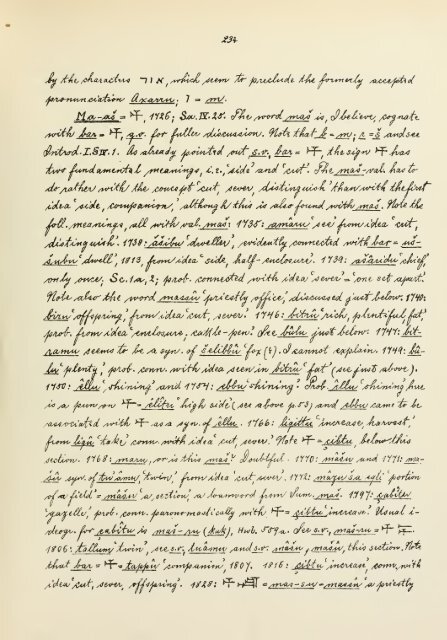 234
by the characters אור, which seem to preclude the formerly accepted
pronunciation Axarru; ו = m.
Ma-aš = 𒈦, 1726; Sa. IV. 28. The word maš is, I believe, cognate
with bar = 𒈦, q.v. for fuller discussion. Note that b = m; r = š and see
Introd. I. § IV. 1. As already pointed out s.v. bar = 𒈦, the sign 𒈦 has
two fundamental meanings, i.e. 'side' and 'cut'. The maš-val. has to
do rather with the concept 'cut, sever, distinguish' than with the first
idea 'side, companion', although this is also found with maš. Note the
foll. meanings, all with val. maš: 1735: amâru 'see' from idea 'cut,
distinguish'. 1738: âšibu 'dweller', evidently connected with bar = aš-
âbu 'dwell', 1813, from idea 'side, half-enclosure'. 1739: ašaridu 'chief',
only once, Sc. 1a, 2; prob. connected with idea 'sever' = 'one set apart'.
Note also the word massû 'priestly office', discussed just below. 1740:
bîru 'offspring', from idea 'cut, sever'. 1746: bitrû 'rich, plentiful, fat',
prob. from idea 'enclosure, cattle-pen'. See bûlu just below. 1747: bit-
ramu seems to be a syn. of šelibbû 'fox' (?). I cannot explain. 1749: bû-
lu 'plenty', prob. conn. with idea seen in bitrû 'fat' (see just above).
1750: êllu 'shining' and 1754: ebbu 'shining'. Prob. êllu 'shining' here
is a pun on 𒈦 = elîtu 'high side' (see above p. 53) and ebbu came to be
associated with 𒈦 as a syn. of êllu. 1766: ligittu 'increase, harvest',
from liqû 'take', conn. with idea 'cut, sever'. Note 𒈦 = çibtu, below this
section. 1768: maru, or is this maš? Doubtful. 1770: mâšu and 1771: ma-
šû syn. of tu'âmu 'twin', from idea 'cut, sever'. 1772: mâšu ša eqli 'portion
of a field' = mâšu 'a section', a loanword from Sum. maš. 1797: çabîtu
'gazelle', prob. conn. paronomastically with 𒈦 = çibtu 'increase'. Usual i-
deogr. for çabîtu is maš-ru (kak), Hwb. 559a. See s.v. mašru = 𒈦
1806: tallum 'twin', see s.v. tuâmu and s.v. mâšu, mašû, this section. Note
that bar = 𒈦 = tappû 'companion', 1807. 1816: çibtu 'increase', conn. with
idea 'cut, sever, offspring'. 1828: 𒈦 = mas-su = massû 'a priestly